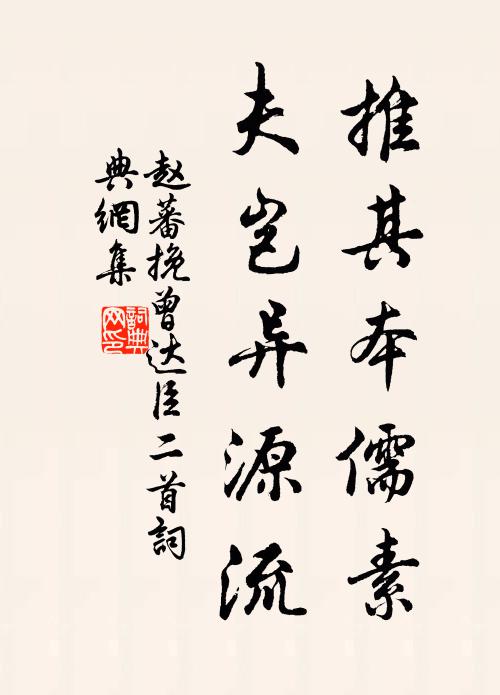 推其本儒素
夫岂异源流
赵蕃挽曾达臣二首词
典網集
詞典
网印